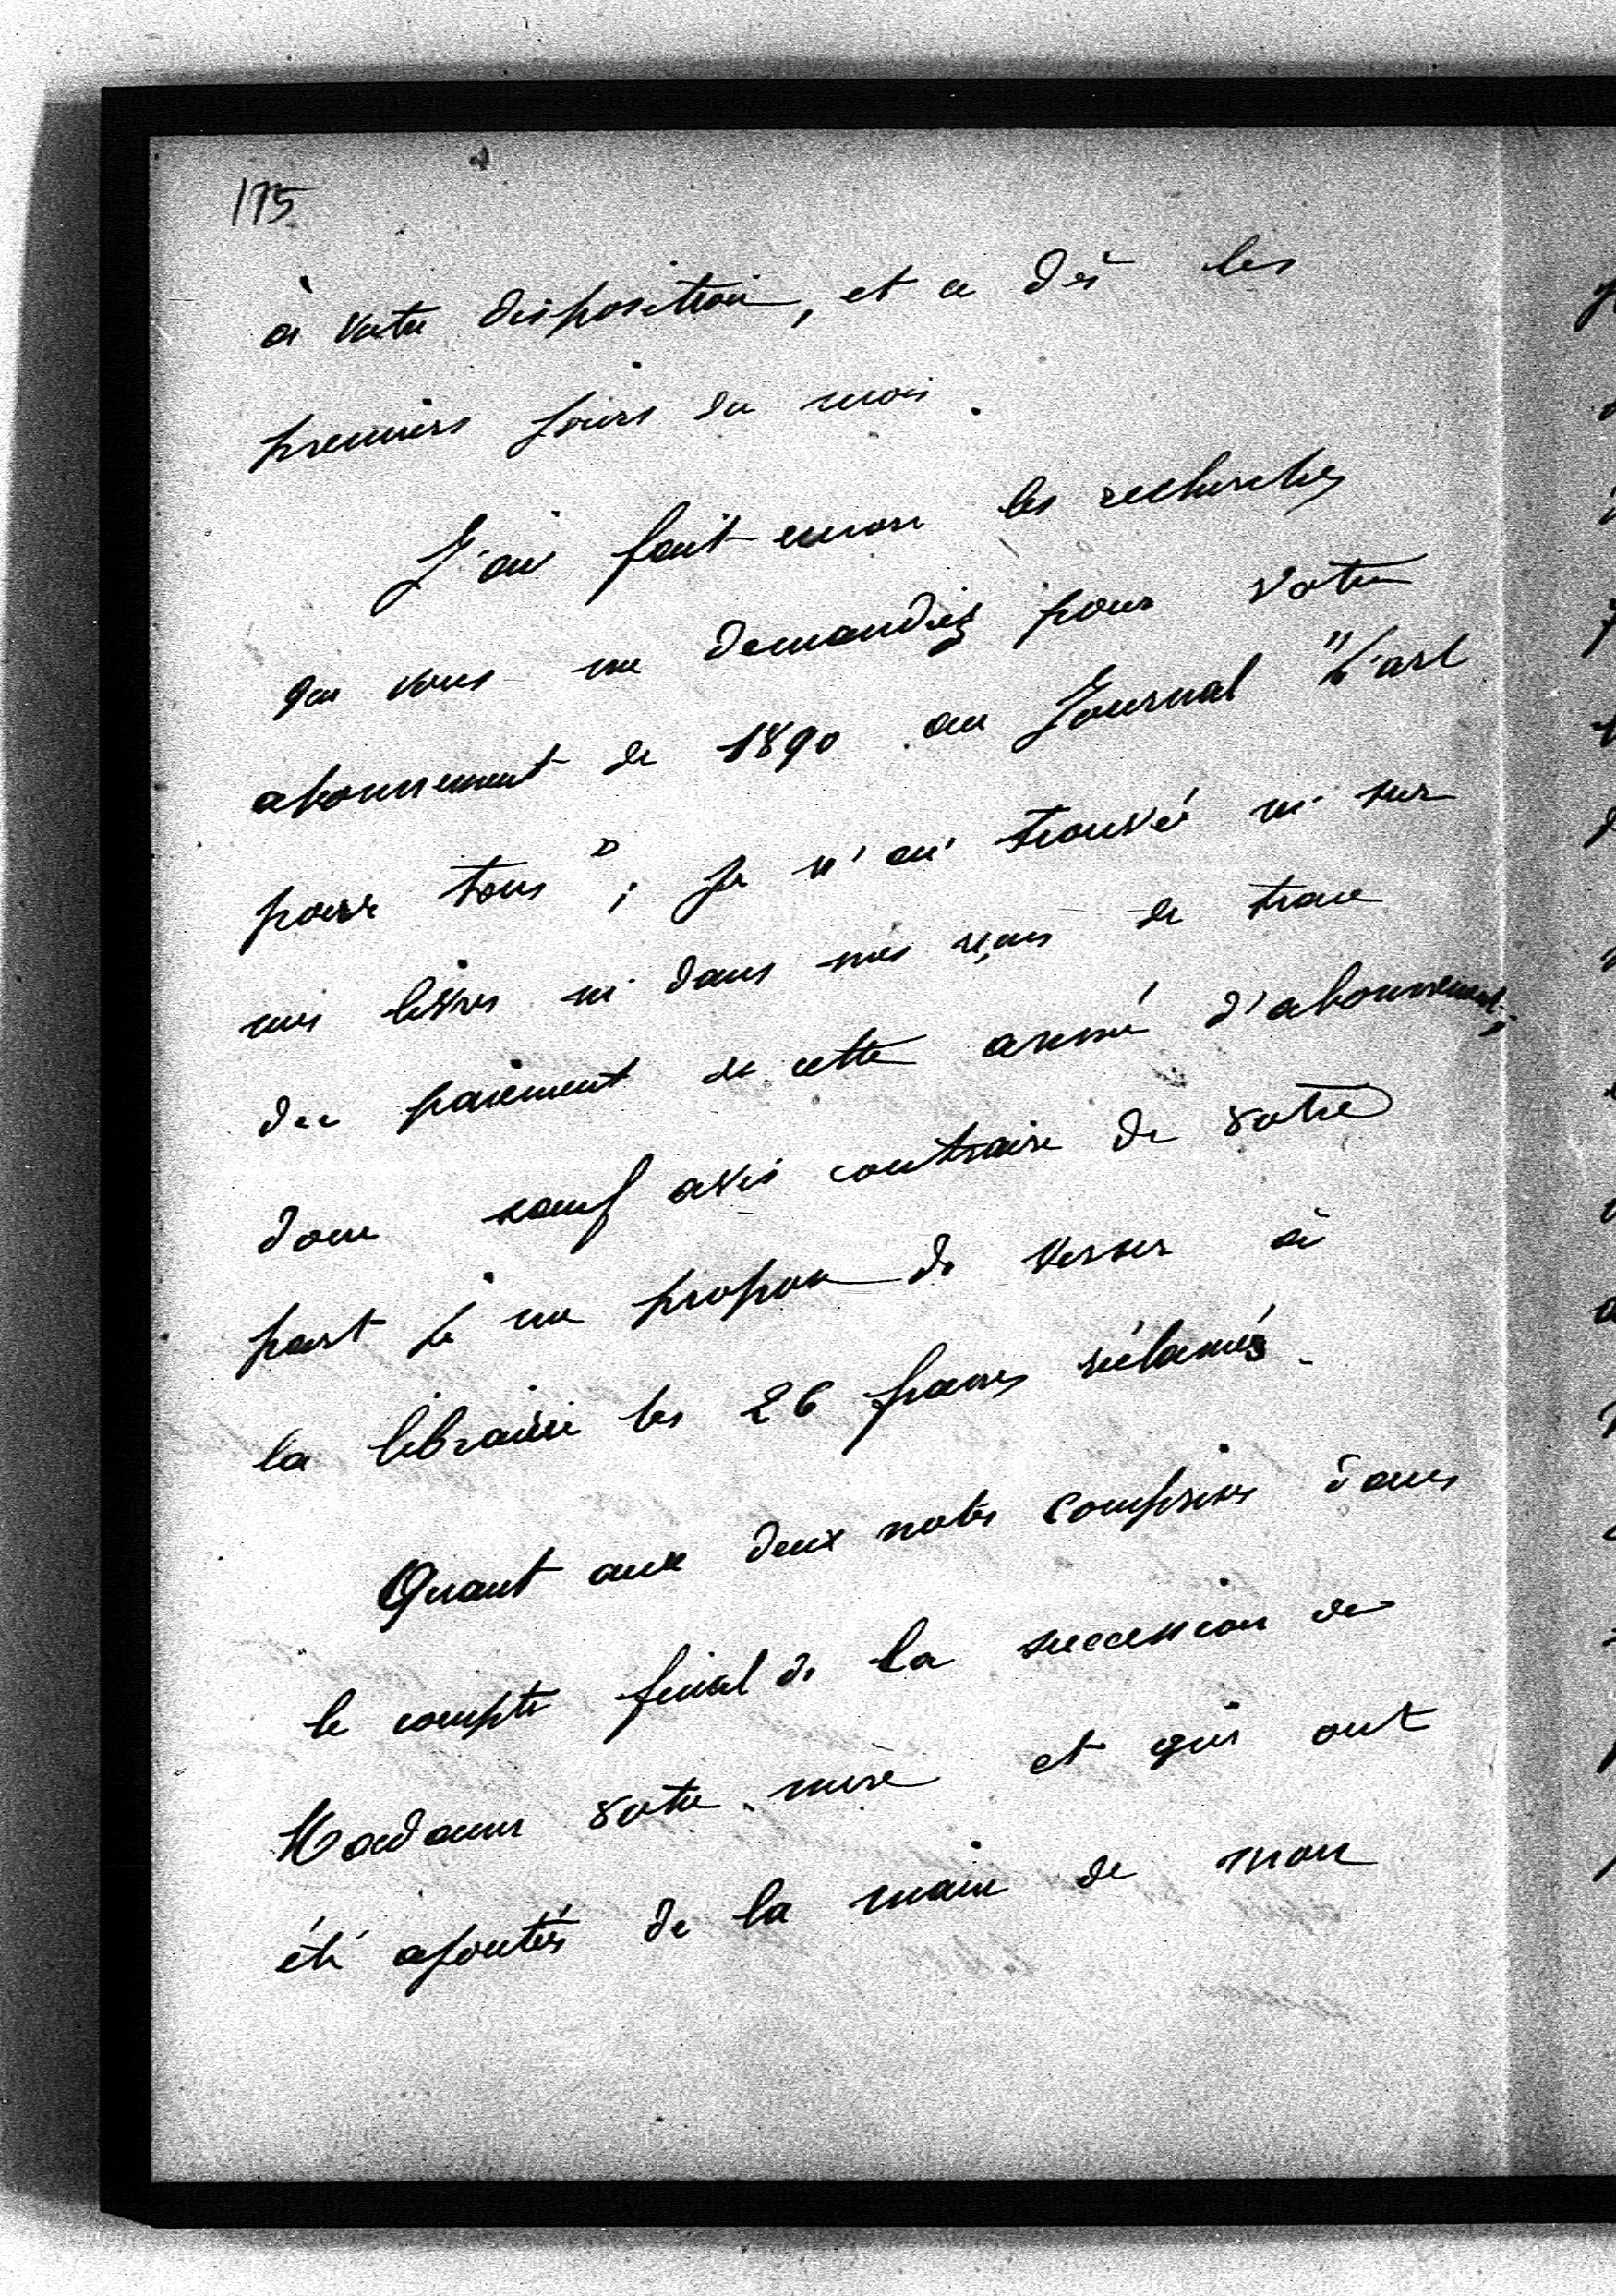 175
à votre disposition, et ce dès les
premiers jours du mois.
J'ai fait encore les recherches
que vous me demandiez pour votre
abonnement de 1890 au Journal "L'art
pour tous"; je n'ai trouvé ni sur
mes livres ni dans mes reçus de trace
du paiement de cette année d'abonnement;
donc sauf avis contraire de votre
part je me propose de verser à
la librairie les 26 francs réclamés.
Quant aux deux notes comprises dans
le compte final de la succession de
Madame votre mère et qui ont
été ajoutées de la main de mon